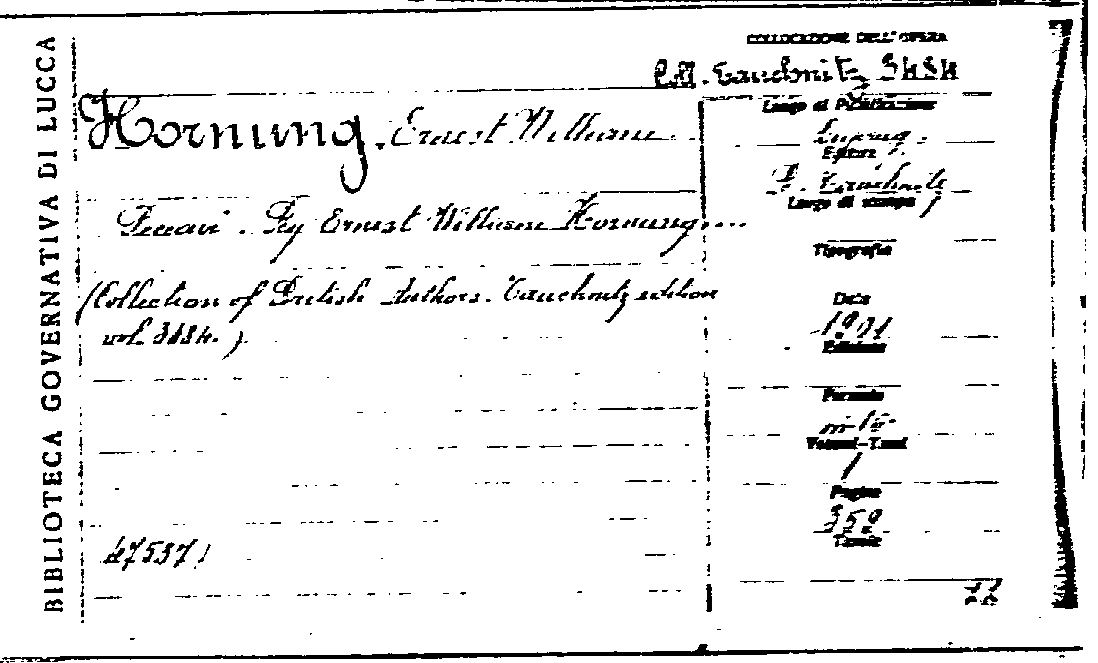 BIBLIOTECA GOVERNATIVA DI LUCCA
COLLOCAZIONE DELL'OPERA
Tauchnitz 3484
Hornung, Ernest William
Luogo di Pubblicazione
Editore
B. Tauchnitz
Luogo di stampa
Peccavi. By Ernest William Hornung....
Tipografia
(Collection of British Authors. Tauchnitz edition
vol. 3484.)
Data
1901
Edizione
Formato
in-16.
Volumi-Tomi
1
Pagine
359
Tavole
47537